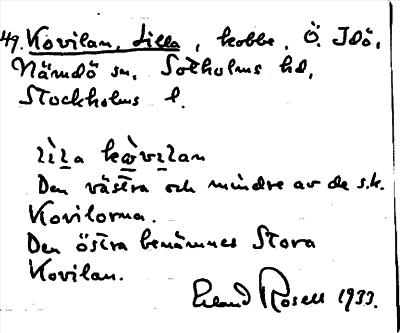 49. Kovilan, Lilla, kobbe, Ö. Idö,
Nämdö sn, Sotholms hd,
Stockholms l.
lìla kòvilan
Den västra och mindre av de s.k.
Kovilorna.
Den östra benämnes Stora
Kovilan.
Erland Rosell 1933.